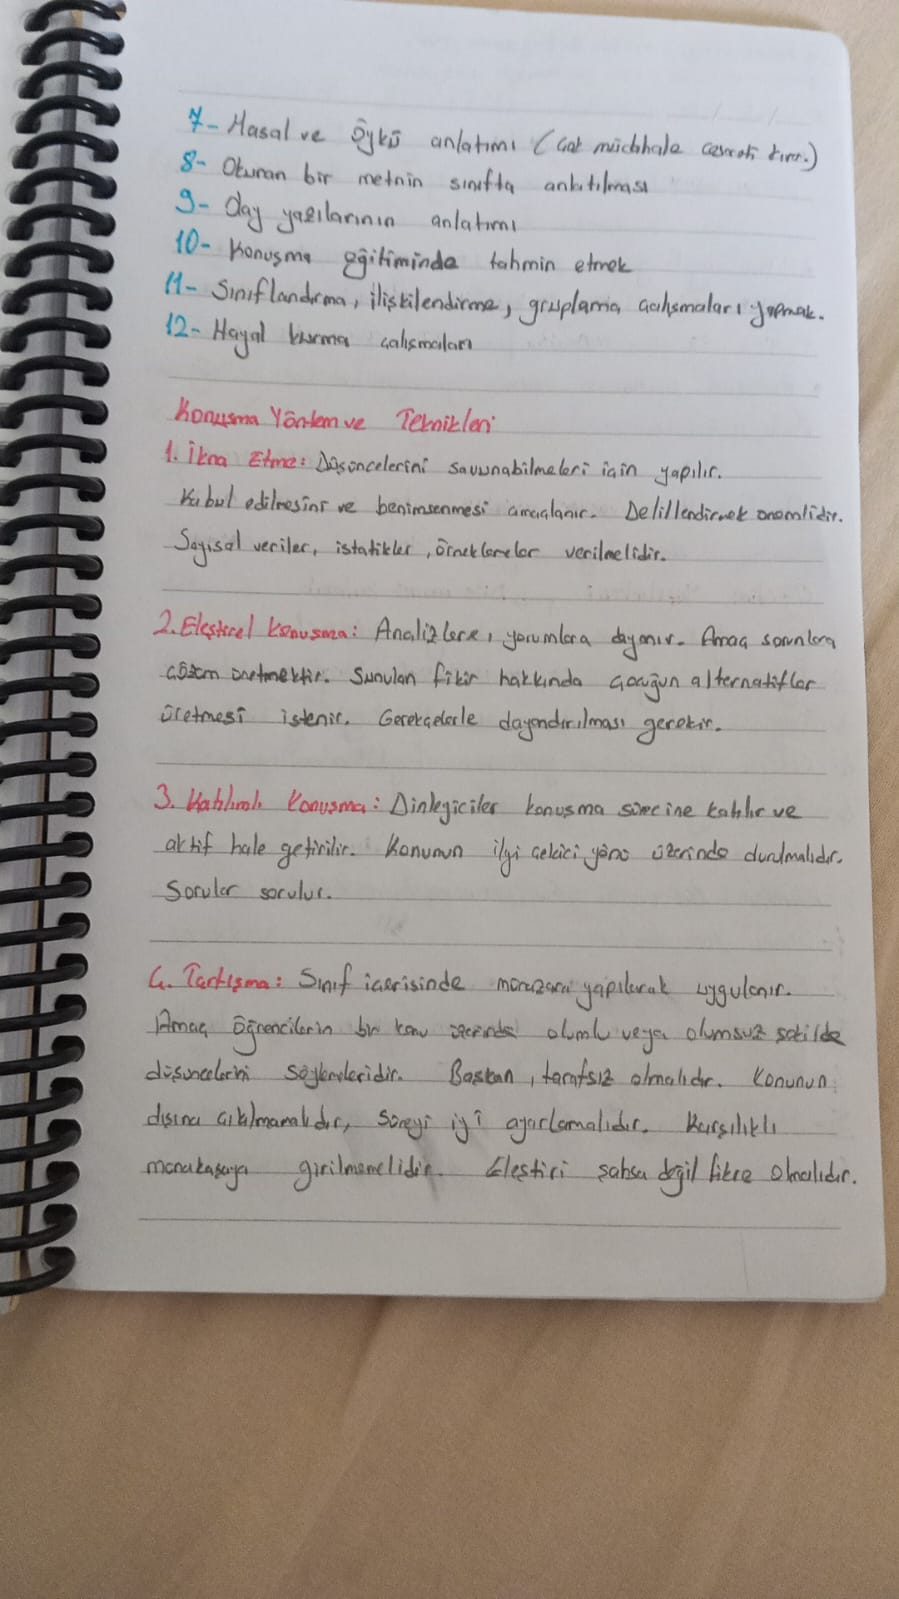 7- Masal ve Öykü anlatımı (Çok müdahale cesareti kırar.)
8- Okunan bir metnin sınıfta anlatılması
9- Olay yazılarının anlatımı
10- Konuşma eğitiminde tahmin etmek
11- Sınıflandırma, ilişkilendirme, gruplama çalışmaları yapmak.
12- Hayal kurma çalışmaları
Konuşma Yöntem ve Teknikleri
1. İkna Etme: Düşüncelerini savunabilmeleri için yapılır.
Kabul edilmesini ve benimsenmesi amaçlanır. Delillendirmek önemlidir.
Sayısal veriler, istatikler, örneklemeler verilmelidir.
2. Eleştirel Konuşma: Analizlere, yorumlara dayanır. Amaç sorunlara
çözüm üretmektir. Sunulan fikir hakkında çocuğun alternatifler
üretmesi istenir. Gerekçelerle dayandırılması gerekir.
3. Katılımlı Konuşma: Dinleyiciler konuşma sürecine katılır ve
aktif hale getirilir. Konunun ilgi çekici yönü üzerinde durulmalıdır.
Sorular sorulur.
4. Tartışma: Sınıf içerisinde münazara yapılarak uygulanır.
Amaç öğrencilerin bir konu üzerinde olumlu veya olumsuz şekilde
düşüncelerini söylemeleridir. Başkan, tarafsız olmalıdır. Konunun
dışına çıkılmamalıdır, süreyi iyi ayarlamalıdır. Karşılıklı
münakaşaya girilmemelidir. Eleştiri şahsa değil fikre olmalıdır.